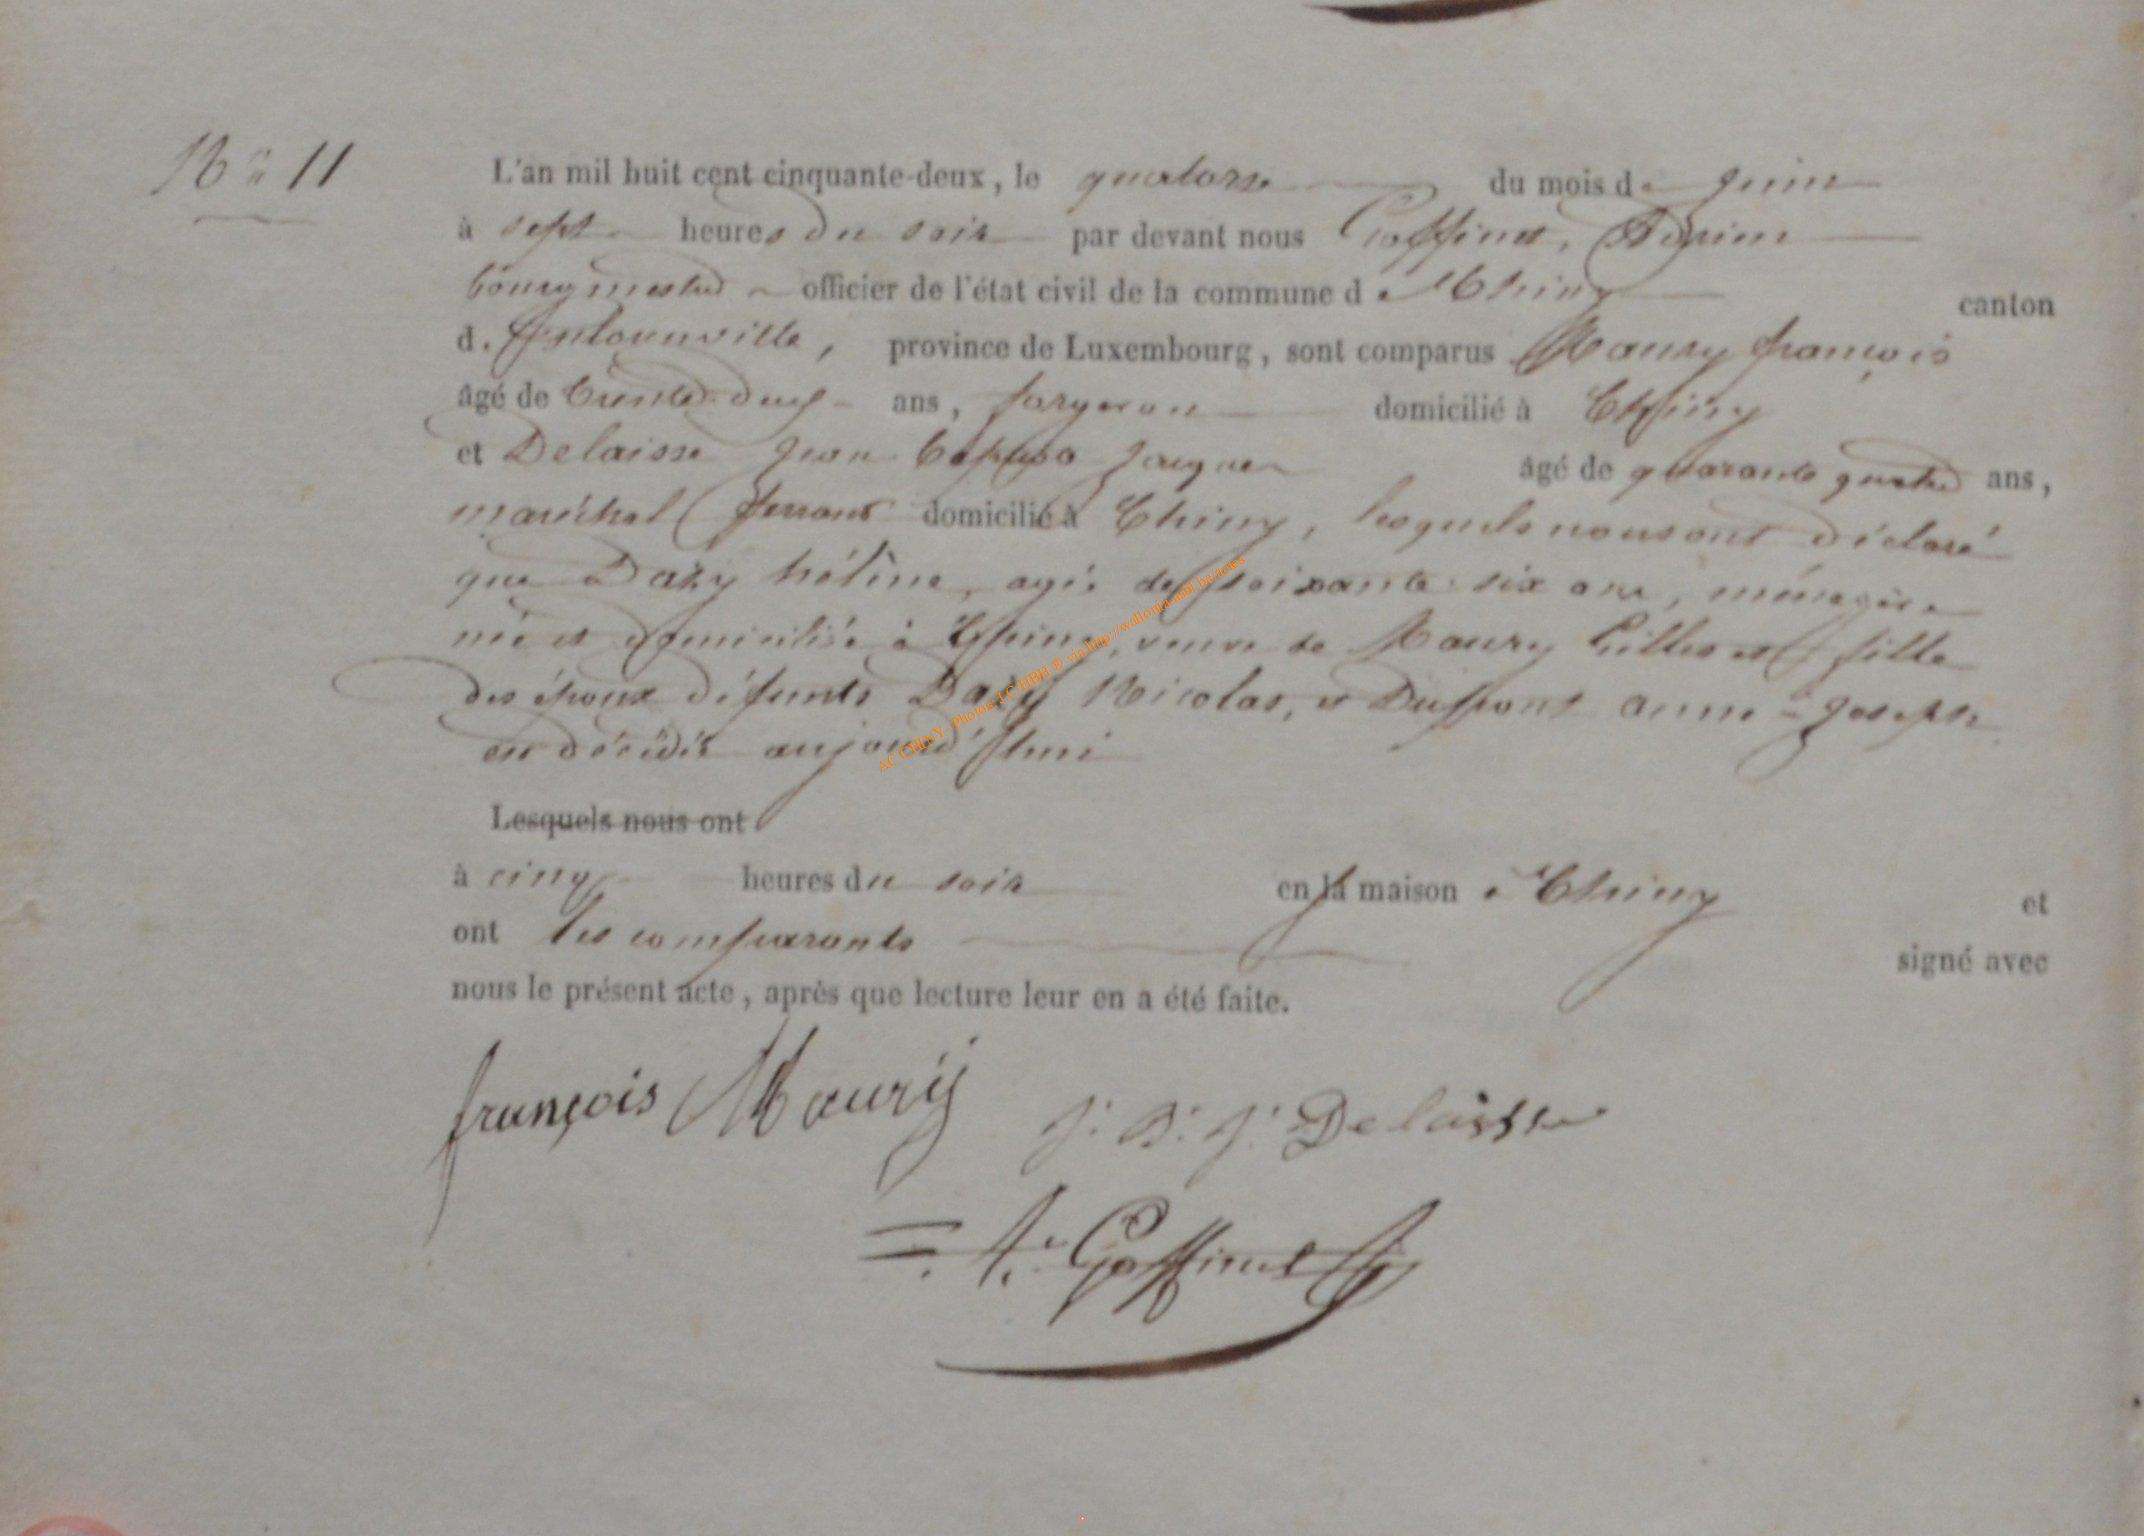 N° 11
L'an mil huit cent cinquante-deux, le quatorze du mois de juin
à sept heures du soir par devant nous Goffinet, Adrien
bourgmestre officier de l'état civil de la commune de Chiny canton
d. , province de Luxembourg, sont comparus Maury françois
âgé de trente-deux ans, forgeron domicilié à Chiny
et Delaisse Jean Baptiste Jacques âgé de quarante quatre ans,
maréchal ferrant domicilié à Chiny, lesquels nous ont déclaré
que Dazy hélène, agée de soixante-six ans, ménagère
née et domiciliée à Chiny, veuve de Maury Gilles et fille
des époux défunts Dazy Nicolas, et Dupont anne-Joseph
est décédée aujourd'hui
Lesquels nous ont
à cinq heures du soir en la maison à Chiny et
ont les comparants signé avec
nous le présent acte, après que lecture leur en a été faite.
françois Maurÿ J. B. J. Delaisse
A. Goffinet
AC CHINY. Photos LC HBH © via http://wallonia-asbl.be/actes